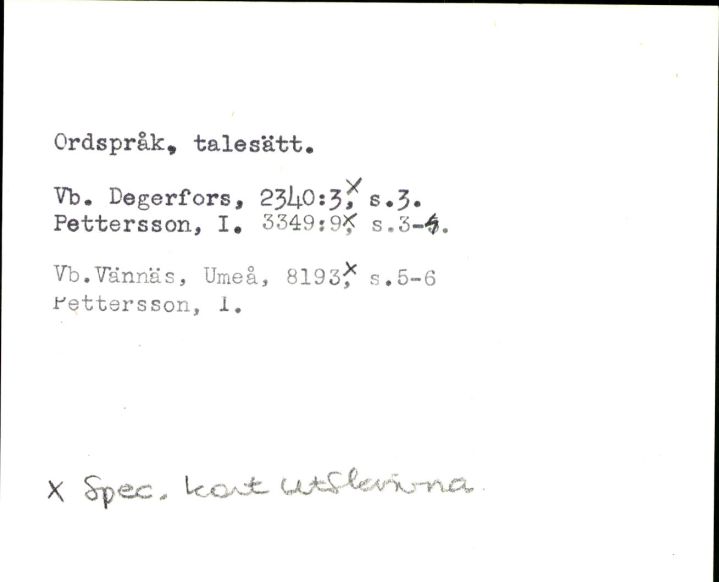 Ordspråk, talesätt.
Vb. Degerfors, 2340:3,x s.3.
Pettersson, I. 3349:9,x s.3-4.
Vb.Vännäs, Umeå, 8193,x s.5-6
Pettersson, I.
x Spec. kort utskrivna